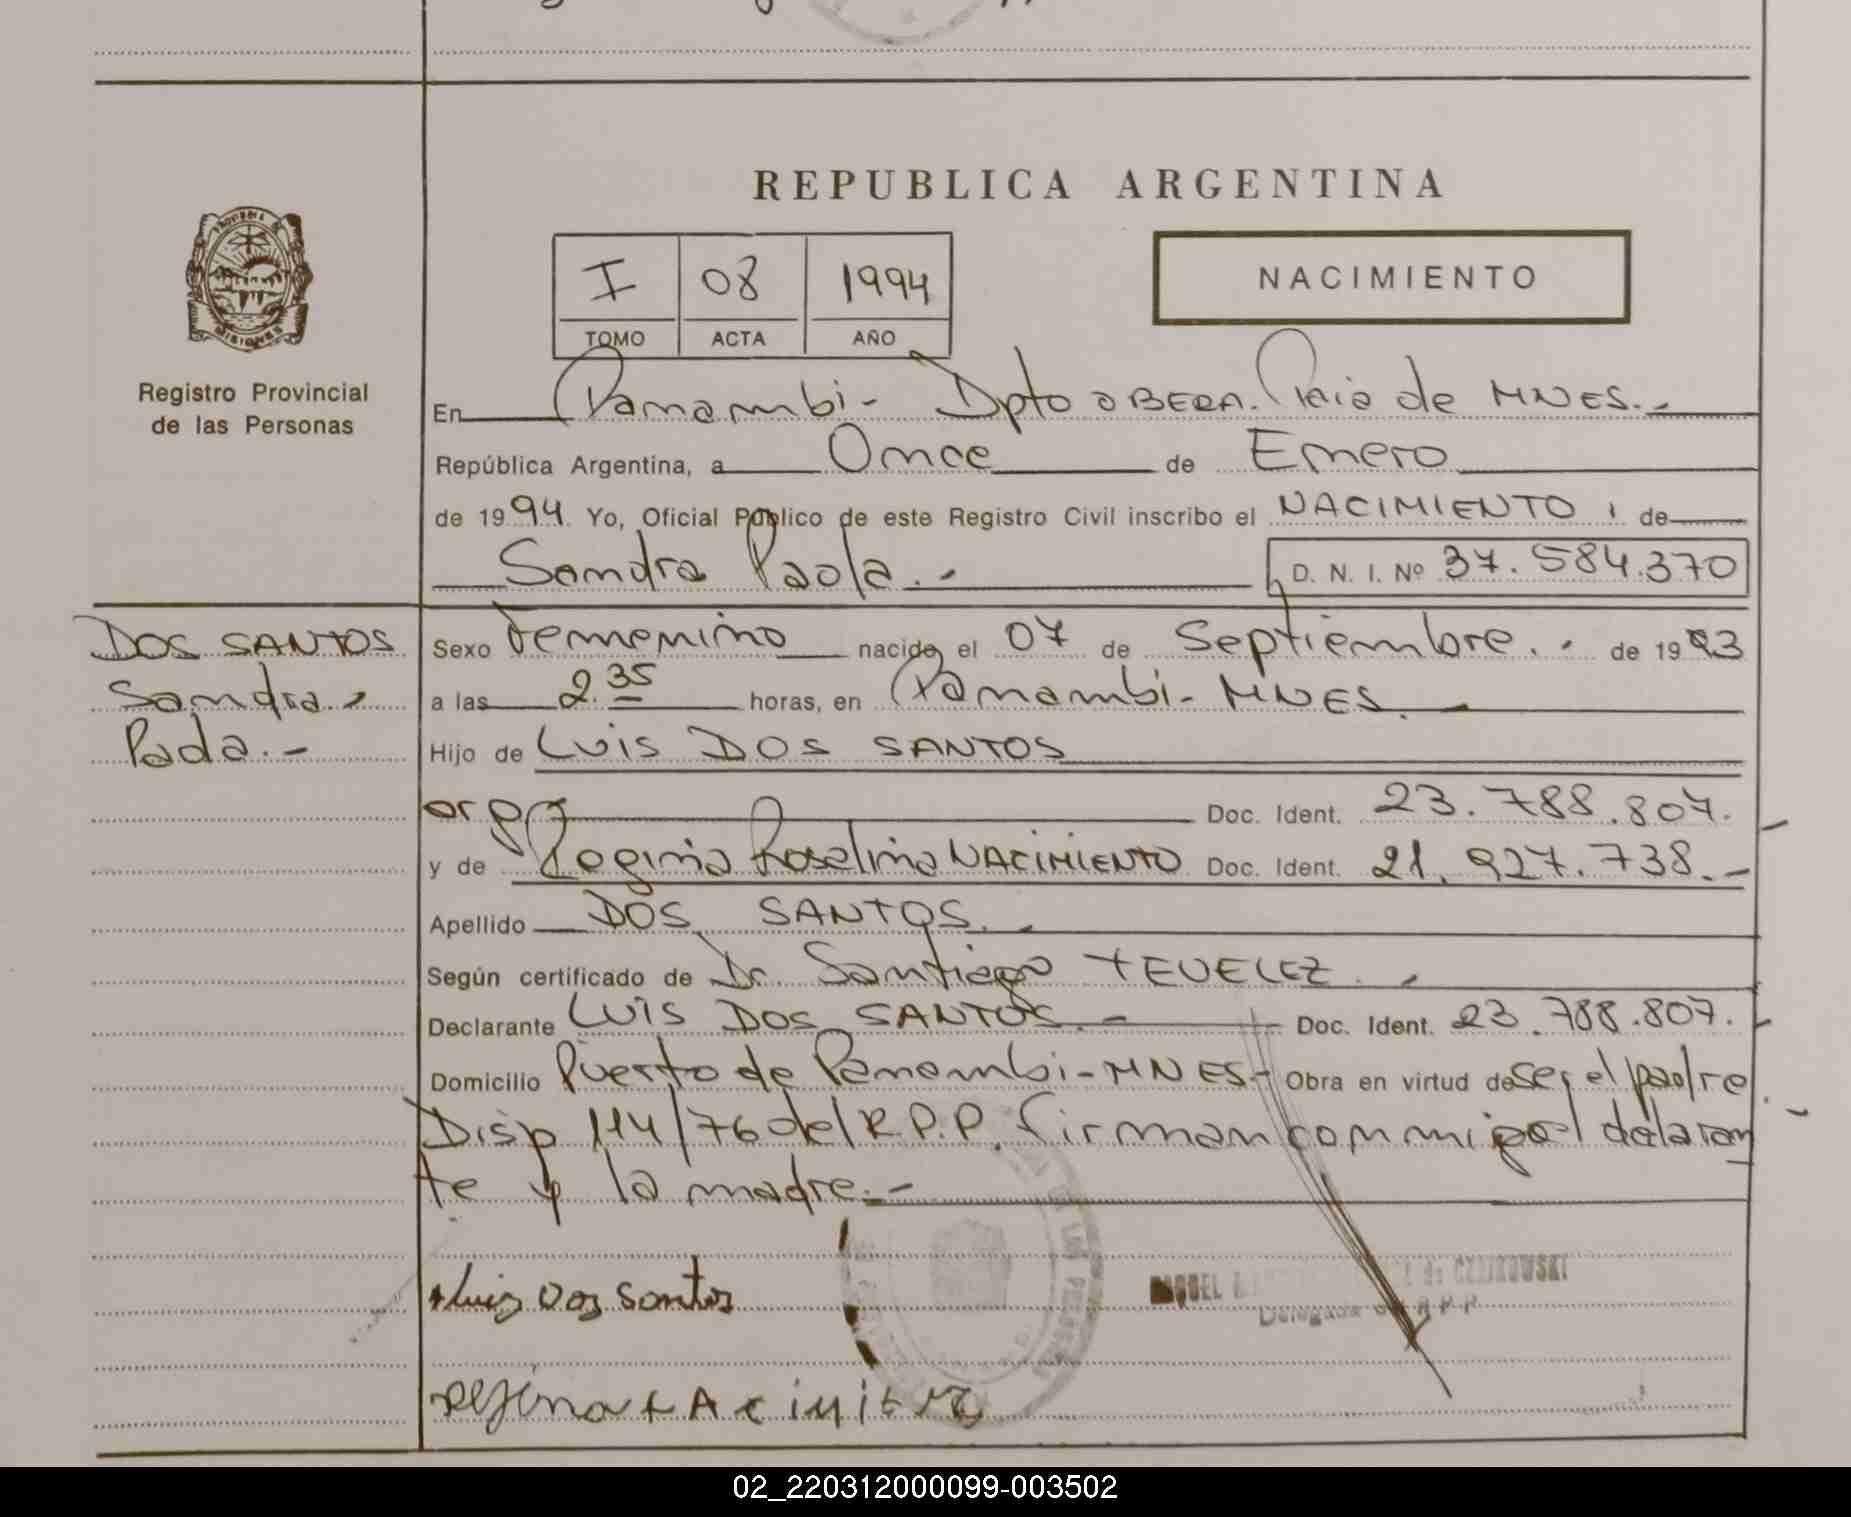 REPUBLICA ARGENTINA
I 08 1994
TOMO ACTA AÑO
NACIMIENTO
Registro Provincial
de las Personas
En Panambi - Dpto OBERA. Pcia de MNES.-
República Argentina, a Once de Enero
de 1994 Yo, Oficial Público de este Registro Civil inscribo el NACIMIENTO, de
Sandra Paola.-
D. N. I. Nº 37.584.370
DOS SANTOS
Sandra
Paola.-
Sexo Femenino nacido el 07 de Septiembre.- de 1993
a las 2.35 horas, en Panambi - MNES.-
Hijo de LUIS DOS SANTOS
arg Doc. Ident. 23.788.807.-
y de Regina Roselina NACIMIENTO Doc. Ident. 21.927.738.-
Apellido DOS SANTOS.-
Según certificado de Dr. Santiago TEVELEZ.-
Declarante LUIS DOS SANTOS.- Doc. Ident. 23.788.807.-
Domicilio Puerto de Panambi - MNES - Obra en virtud de ser el padre.-
Disp 114/76 del R.P.P. firman conmigo el declaran
te y la madre.-
Luis Dos Santos
de CZAIKOWSKI
Delegada R.P.P.
02_220312000099-003502